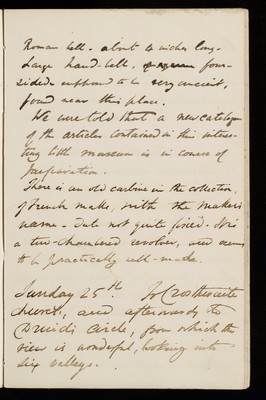 Roman bell - about 4 inches long.
Large hand-bell, four-
sided supposed to be very ancient,
found near this place.
We were told that a new catalogue
of the articles contained in this interes-
ting little museum is in course of
preparation.
There is an old carbine in the collection,
of French make, with the maker's
name - date not quite fixed. It is
a two-chambered revolver, and seems
to be practically well-made.
Sunday 25th To Crosthwaite
church, and afterwards to
Druids Circle, from which the
view is wonderful, looking into
six valleys.